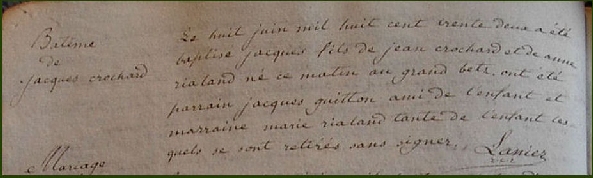 Batême
de
jacques crochard
Le huit juin mil huit cent trente deux a été
baptisé jacques fils de jean crochard et de anne
rialand né ce matin au grand betz, ont été
parrain jacques guitton ami de l'enfant et
marraine marie rialand tante de l'enfant les-
quels se sont retirés sans signer. Lanier
Mariage